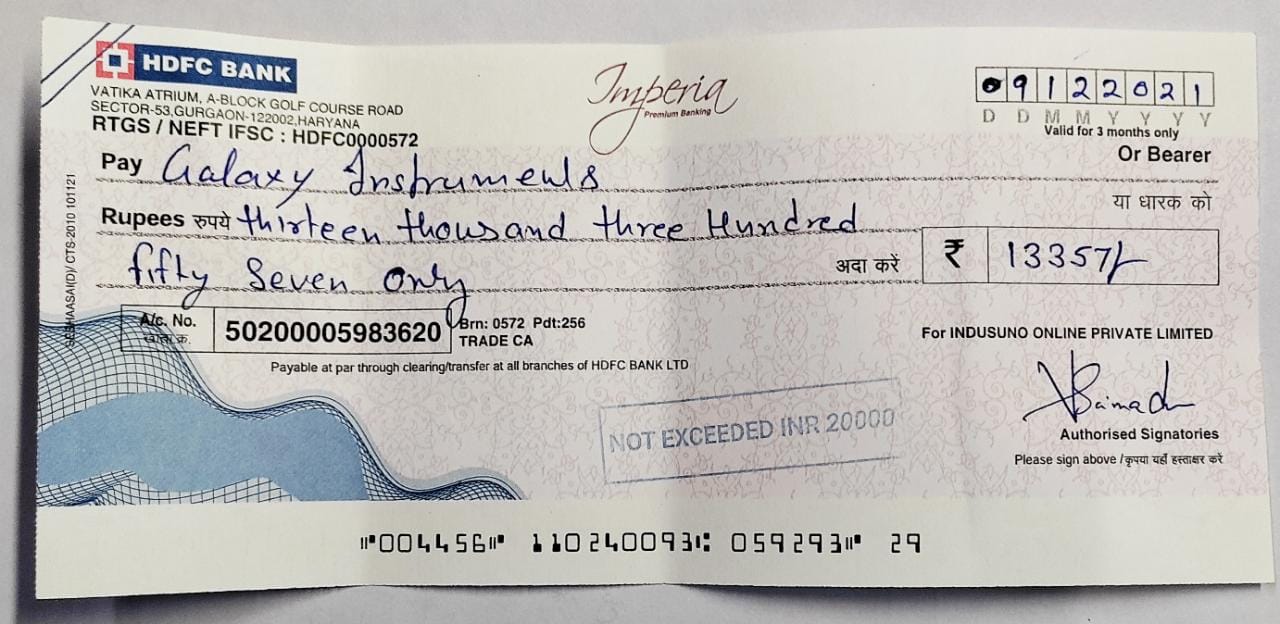 HDFC BANK
VATIKA ATRIUM, A-BLOCK GOLF COURSE ROAD
SECTOR-53,GURGAON-122002,HARYANA
RTGS / NEFT IFSC : HDFC0000572
Imperia
Premium Banking
09122021
D D M M Y Y Y Y
Valid for 3 months only
Pay Galaxy Instruments
Or Bearer
या धारक को
Rupees रुपये thirteen thousand three Hundred
fifty Seven Only
अदा करें
₹ 13357/-
A/c. No.
खाता क्र.
50200005983620
Brn: 0572 Pdt:256
TRADE CA
Payable at par through clearing/transfer at all branches of HDFC BANK LTD
For INDUSUNO ONLINE PRIVATE LIMITED
NOT EXCEEDED INR 20000
Authorised Signatories
Please sign above /कृपया यहाँ हस्ताक्षर करें
CTS-2010 101121
⑈004456⑈ 110240093⑆ 059293⑈ 29